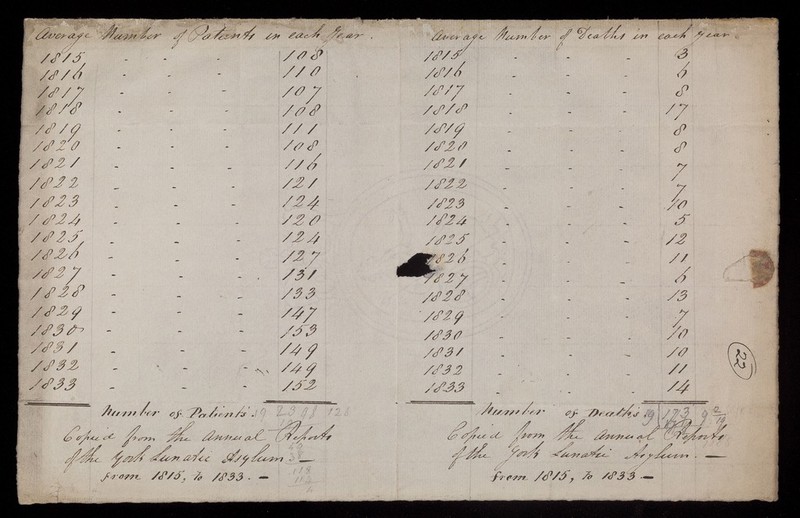 Average Number of Patients in each Year.
1815 - - - 108
1816 - - - 110
1817 - - - 107
1818 - - - 108
1819 - - - 111
1820 - - - 108
1821 - - - 116
1822 - - - 121
1823 - - - 124
1824 - - - 120
1825 - - - 124
1826 - - - 127
1827 - - - 131
1828 - - - 133
1829 - - - 147
1830 - - - 153
1831 - - - 149
1832 - - - 149
1833 - - - 152
Number of Patients 19
Copied from the Annual Reports
of the York Lunatic Asylum —
from 1815, to 1833. —
Average Number of Deaths in each year.
1815 - - - 3
1816 - - - 6
1817 - - - 8
1818 - - - 17
1819 - - - 8
1820 - - - 8
1821 - - - 7
1822 - - - 7
1823 - - - 10
1824 - - - 5
1825 - - - 12
1826 - - - 11
1827 - - - 6
1828 - - - 13
1829 - - - 7
1830 - - - 10
1831 - - - 10
1832 - - - 11
1833 - - - 14
Number of Deaths 19 173 9
Copied from the Annual Reports
of the York Lunatic Asylum. —
from 1815, to 1833 —
22